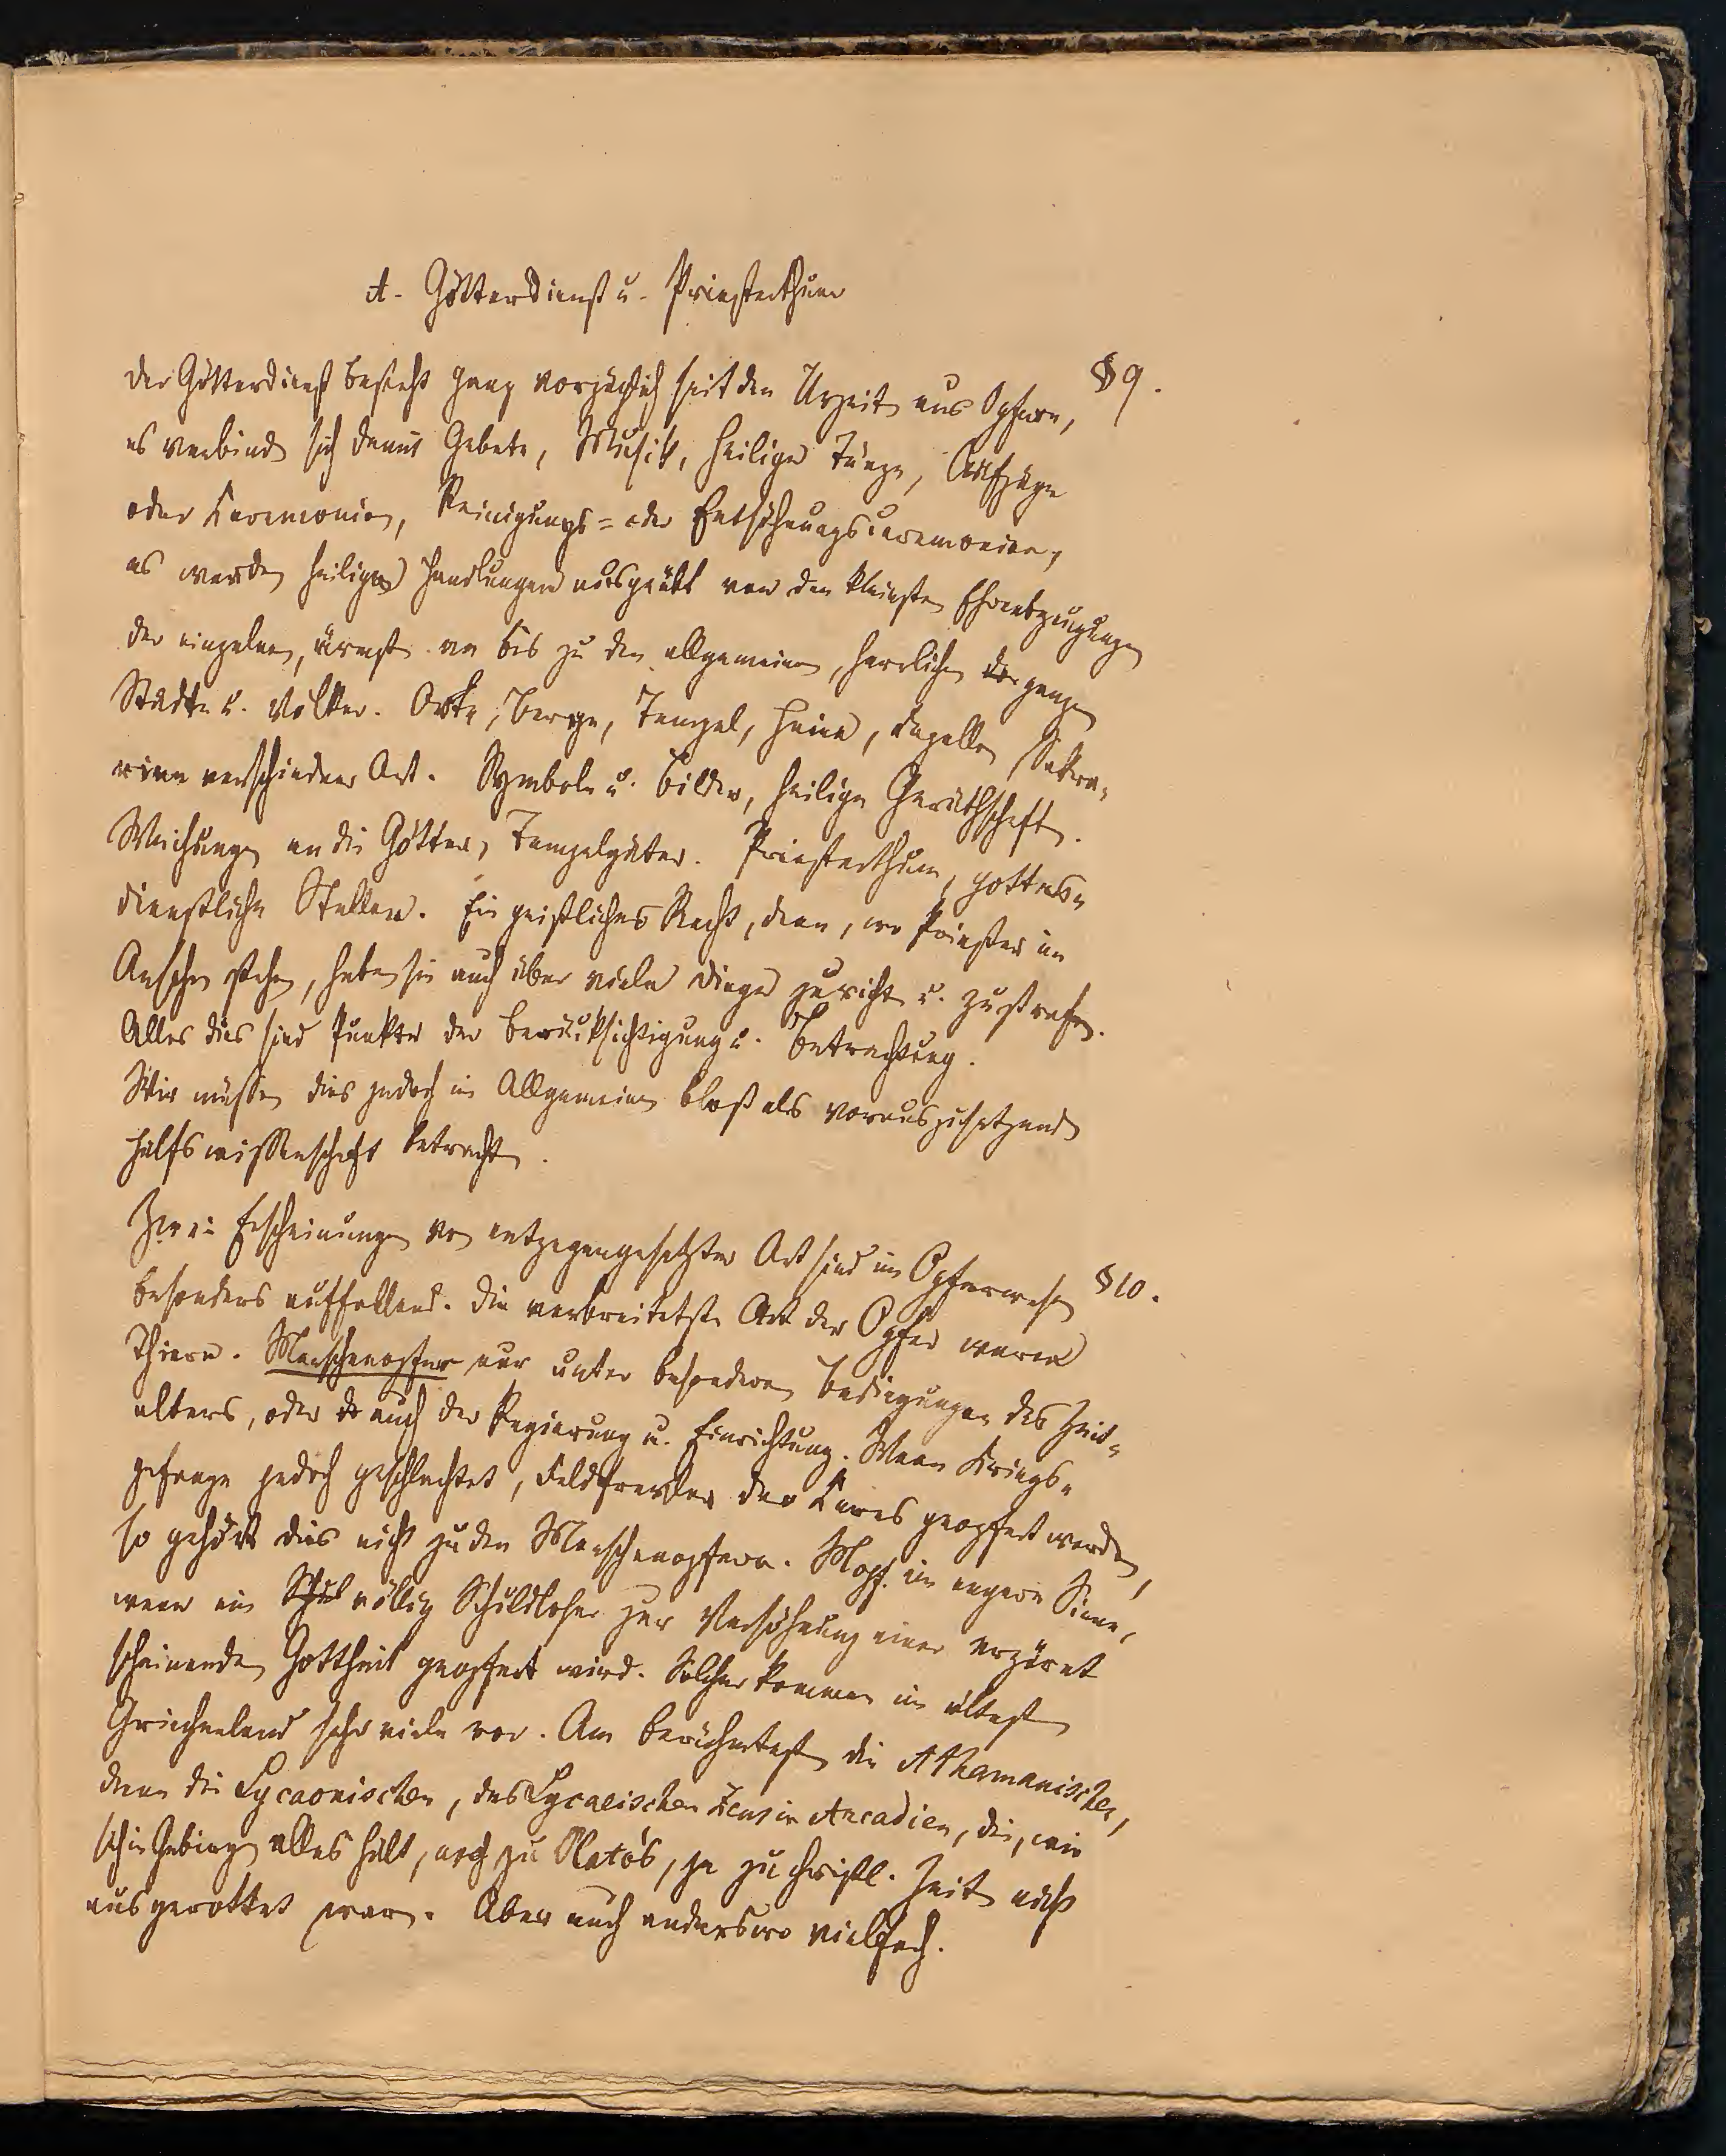 A. Götterdienst u. Priesterthum
Der Götterdienst besteht ganz vorzüglich seit den Urzeiten aus Opfern, § 9.
es verbinden sich damit Gebete, Musik, heilige Tänze, Aufzüge
oder Ceremonien, Reinigungs= oder Entsühnungsceremonien,
es werden heilige Handlungen ausgeübt von den kleinsten Ehrenbezeugungen
der einzelnen, ärmsten an bis zu den allgemeinen, herrlichen der ganzen
Städte u. Völker. Orte, Berge, Tempel, Haine, Capellen, Sakra-
rien verschiedener Art. Symbole u. Bilder, heilige Geräthschaften.
Weihungen an die Götter, Tempelgüter. Priesterthum, gottes-
dienstliche Stellen. Ein geistliches Recht, denn, wo Priester im
Ansehen stehen, haben sie auch über viele Dinge zu richten u. zu strafen.
Alles dies sind Punkte der Berücksichtigung u. Betrachtung.
Wir müssen dies jedoch im Allgemeinen bloß als vorauszusetzende
Hülfswissenschaft betrachten.
Zwei Erscheinungen von entgegengesetzter Art sind im Opferwesen § 10.
besonders auffallend. Die verbreitetste Art der Opfer waren
Thiere. Menschenopfer nur unter besonderen Bedingungen des Zeit-
alters, oder auch der Regierung u. Einrichtung. Wenn Kriegs-
gefangene jedoch geschlachtet, Feldfrevler der Ceres geopfert werden,
so gehört dies nicht zu den Menschenopfern. Mopf. im engern Sinne,
wenn ein völlig Schuldloser zur Versöhnung einer erzürnt
scheinenden Gottheit geopfert wird. Solcher kommen im ältesten
Griechenland sehr viele vor. Am berühmtesten die Athamanischen,
dann die Lycaonischen, des Lycaeischen Zeus in Arcadien, die, wie
sich im Gebirge alles hält, noch zu Plato's, ja zu christl. Zeiten nicht
ausgerottet waren. Aber auch anderswo vielfach.